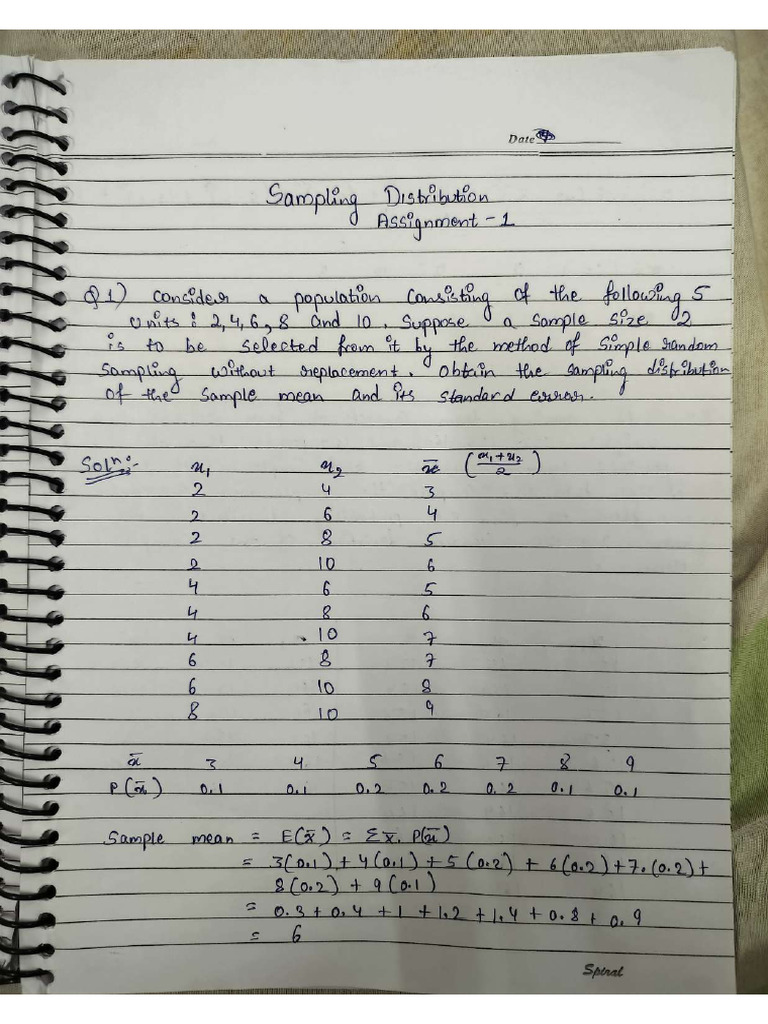 Date
Sampling Distribution
Assignment - 1
Q1) Consider a population consisting of the following 5
units : 2, 4, 6, 8 and 10. Suppose a sample size 2
is to be selected from it by the method of simple random
sampling without replacement. Obtain the sampling distribution
of the sample mean and its standard error.
Solⁿ:- x₁ x₂ x̄ (x₁+x₂/2)
2 4 3
2 6 4
2 8 5
2 10 6
4 6 5
4 8 6
4 10 7
6 8 7
6 10 8
8 10 9
x̄ 3 4 5 6 7 8 9
P(x̄) 0.1 0.1 0.2 0.2 0.2 0.1 0.1
Sample mean = E(x̄) = Σx̄. P(x̄)
= 3(0.1) + 4(0.1) + 5(0.2) + 6(0.2) + 7.(0.2) +
8(0.2) + 9(0.1)
= 0.3 + 0.4 + 1 + 1.2 + 1.4 + 0.8 + 0.9
= 6
Spiral